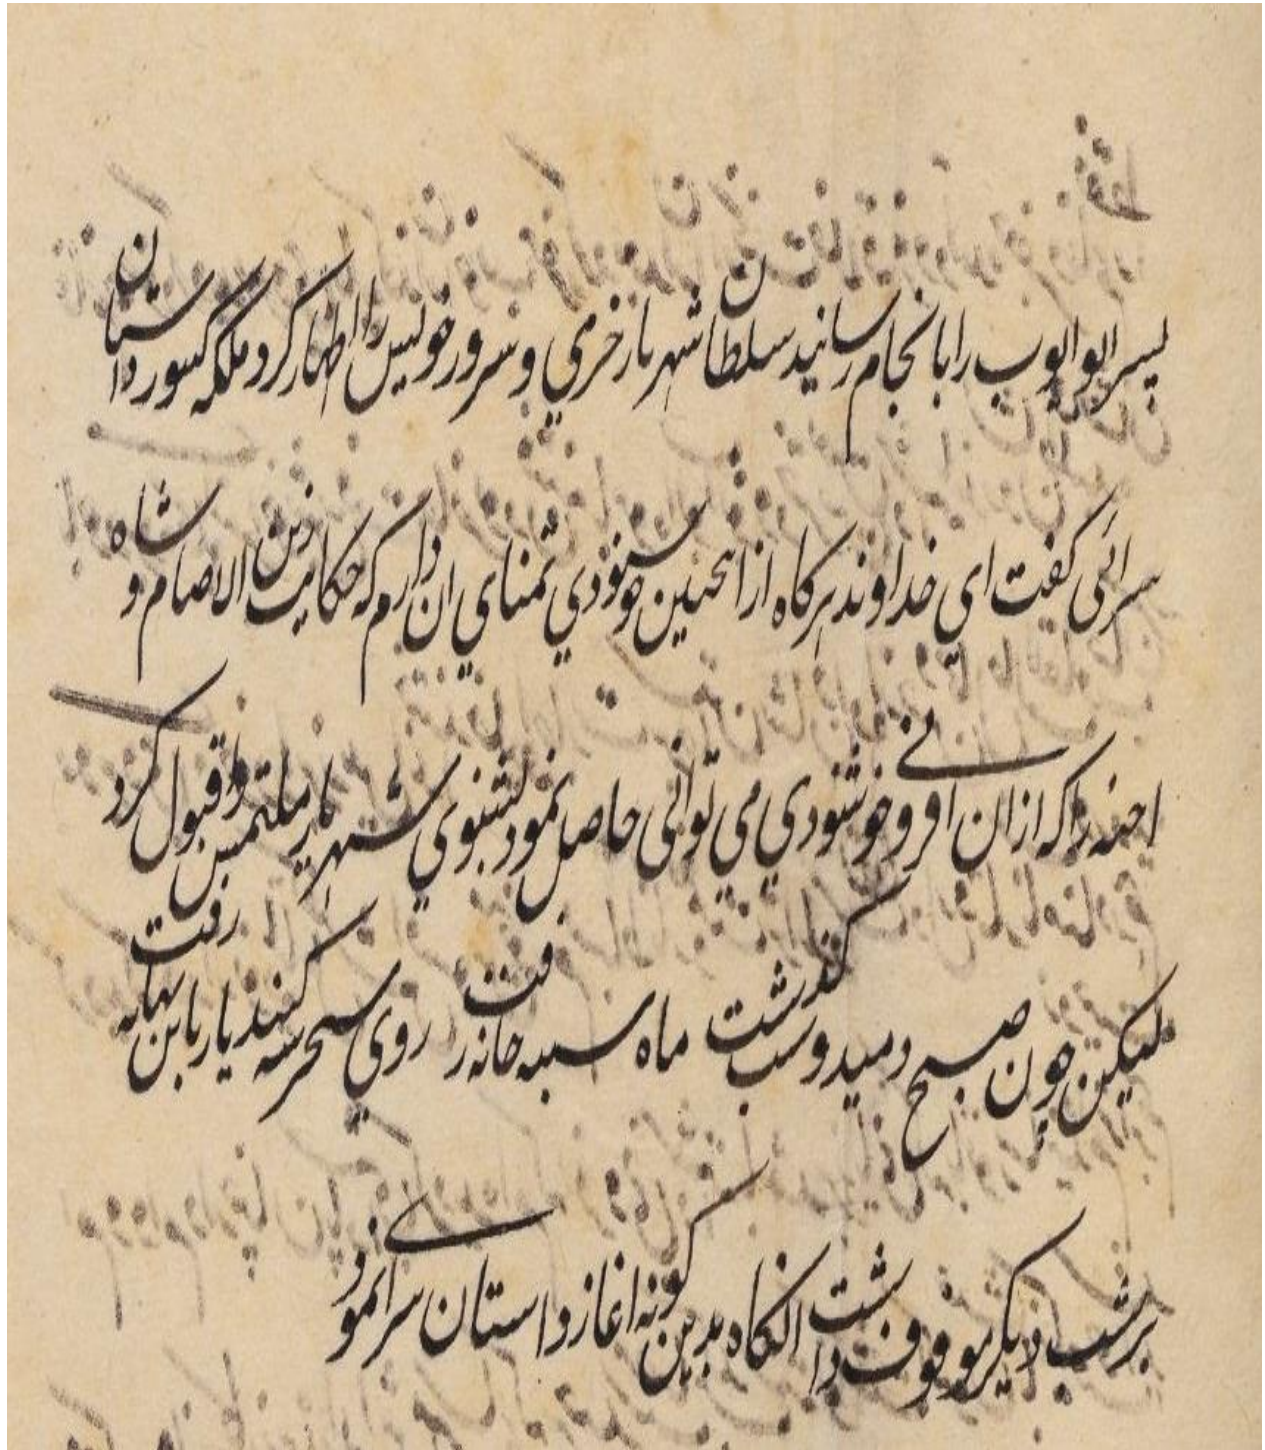 پسر ابو ایوب را بانجام رسانید سلطان شهریار خرمي و سرور خویش را اظهار کرد ملکه کسور داستان
سرائی گفت اي خداوند هرکاه از اینچنین خوشنودي تمناي ان دارم که حکایت زین الاصنام و شاه
اجنه را که ازان افزو خوشنودي مي توانی حاصل نمود بشنوي شهریار ملتمس و قبول کرد
لیکن چون صبح دمید و شب گذشت ماه سیه خانه رفت روي سحر سه کنند یار باین بهانه رفت
بر شب دیگر موقوف داشت انکاه بدین گونه اغاز داستان سرائے نمود